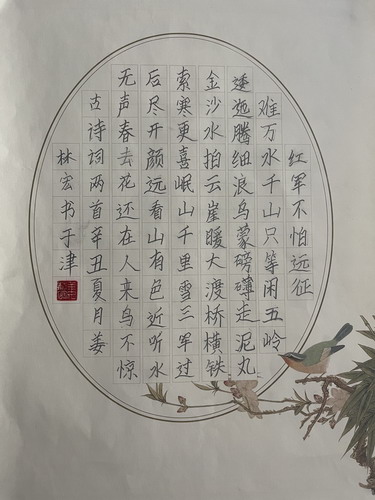 红军不怕远征
难万水千山只等闲五岭
逶迤腾细浪乌蒙磅礴走泥丸
金沙水拍云崖暖大渡桥横铁
索寒更喜岷山千里雪三军过
后尽开颜远看山有色近听水
无声春去花还在人来鸟不惊
古诗词两首辛丑夏月姜
林宏书于津